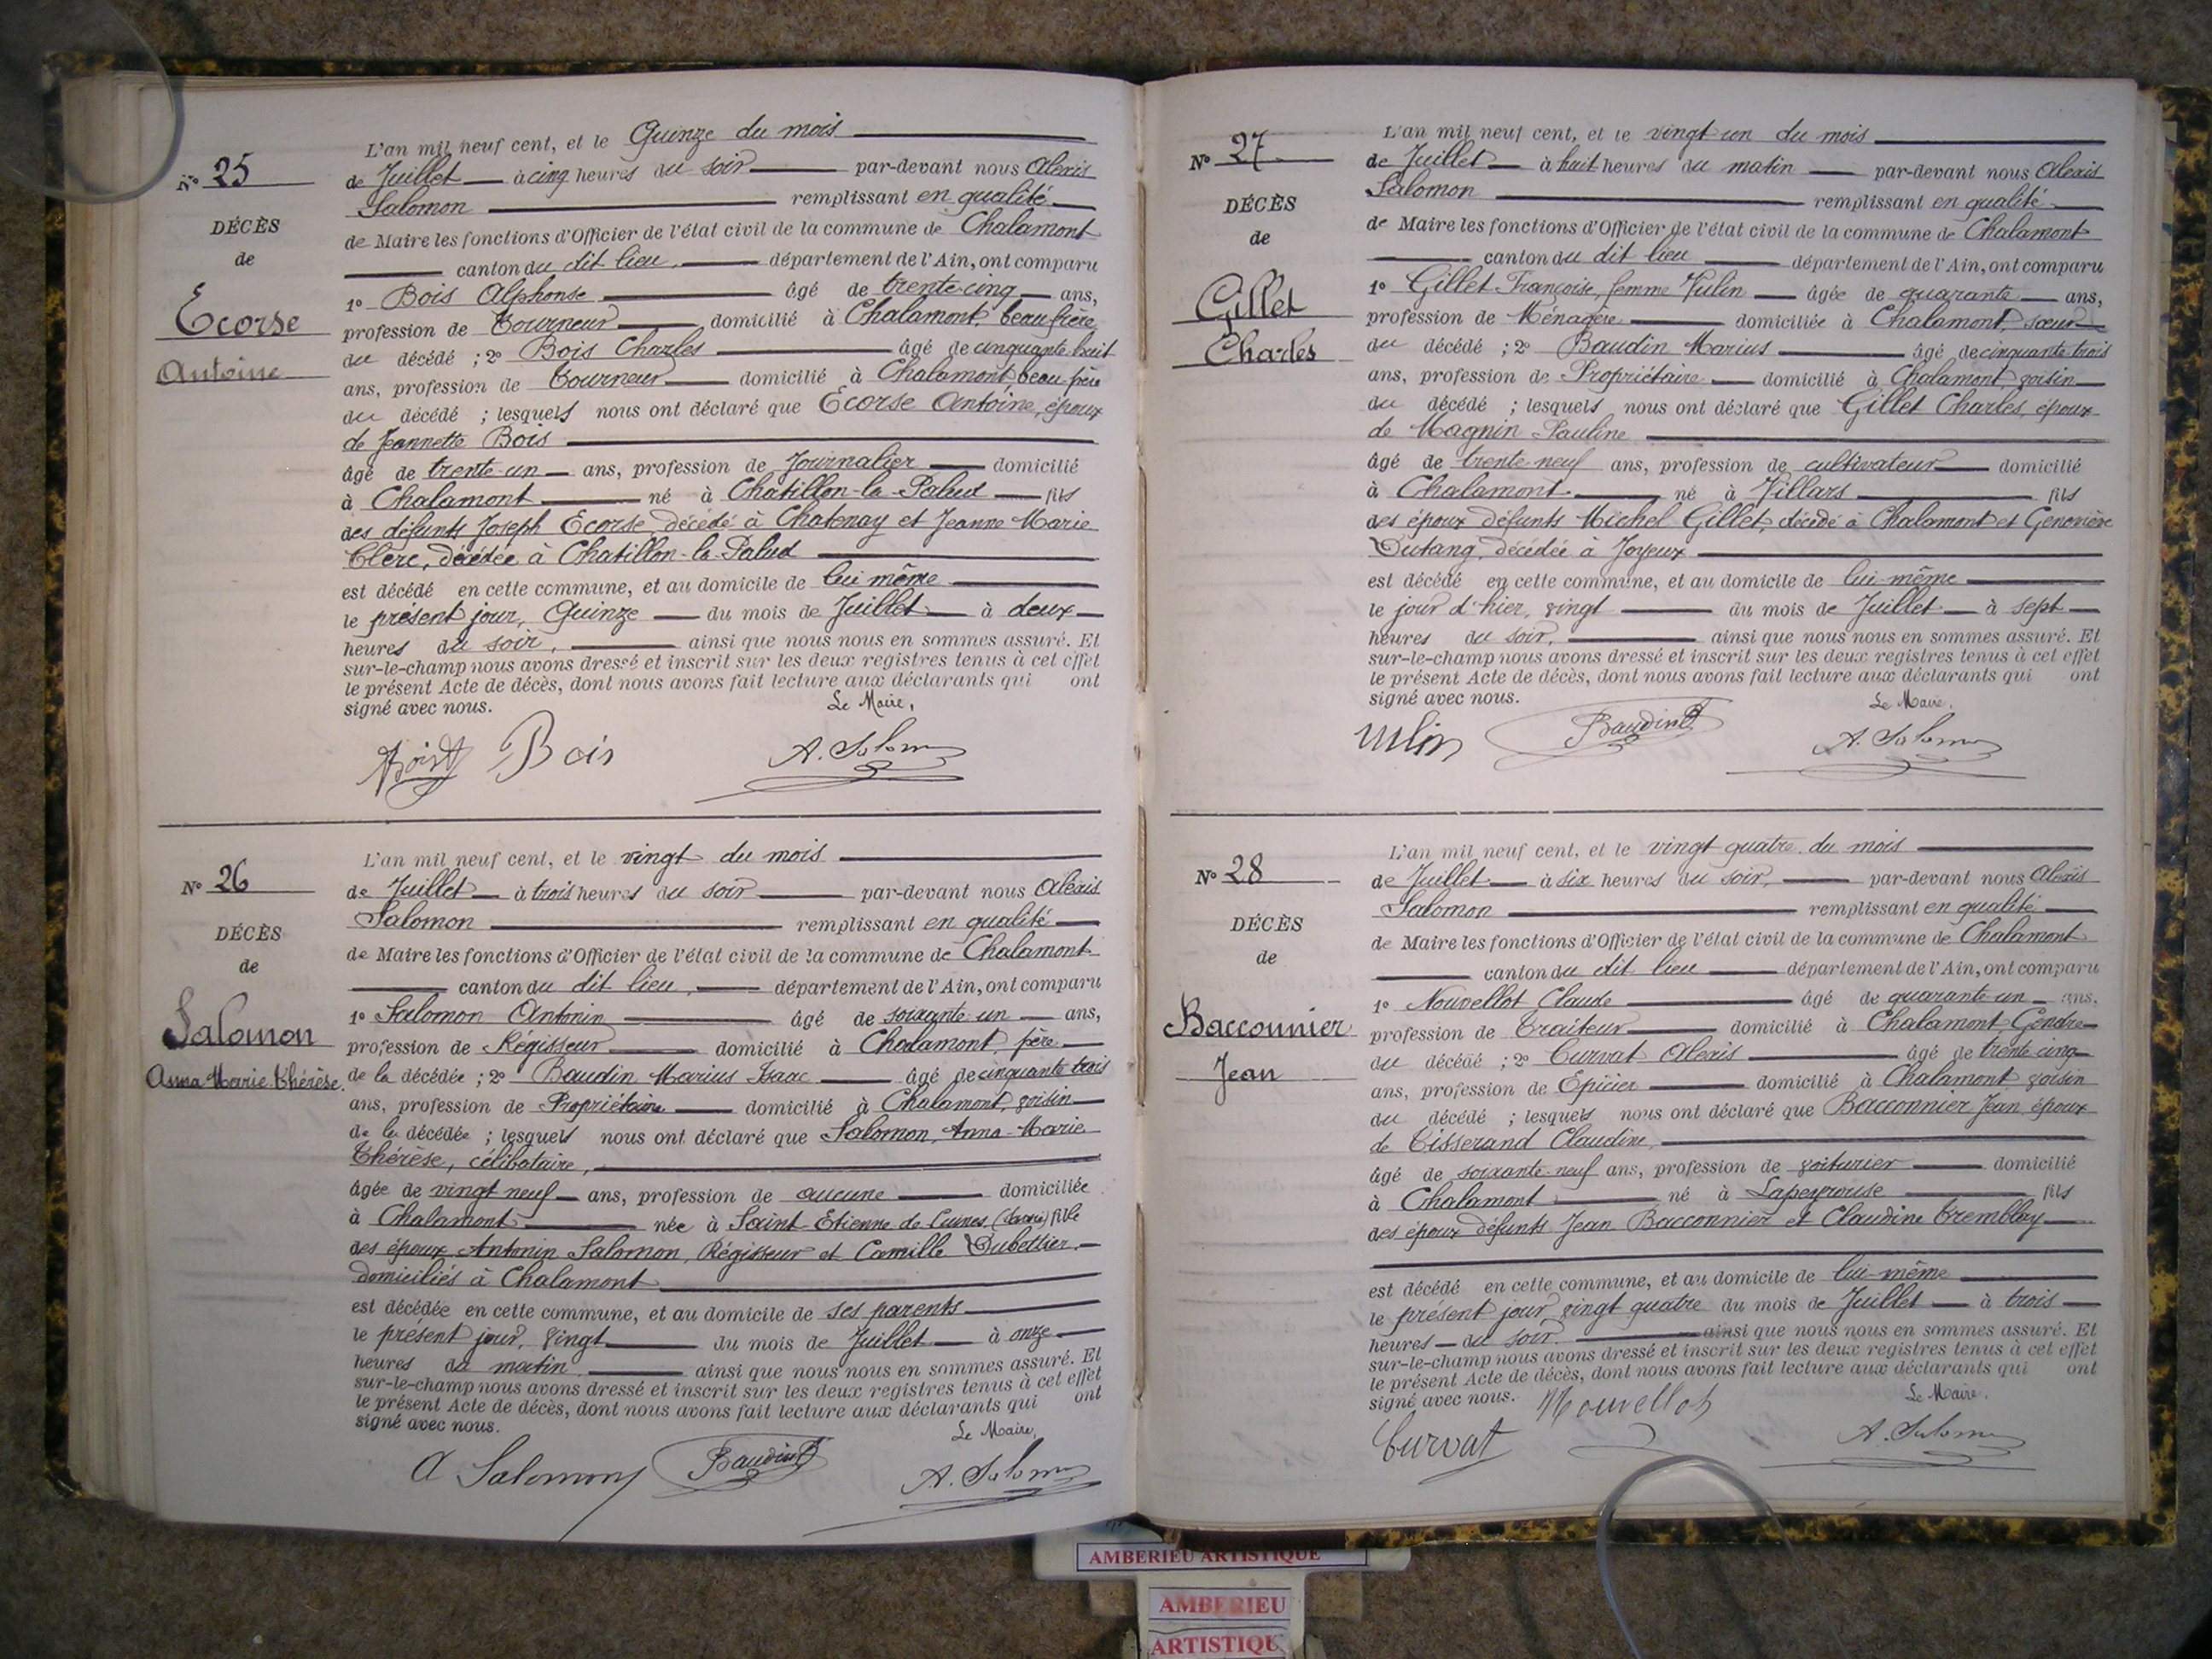 N° 25
DÉCÈS
de
Ecorse
Antoine
L'an mil neuf cent, et le Quinze du mois
de Juillet à cinq heures du soir par-devant nous Alexis
Salomon remplissant en qualité
de Maire les fonctions d'Officier de l'état civil de la commune de Chalamont
canton du dit lieu, département de l'Ain, ont comparu
1° Bois Alphonse âgé de trente-cinq ans,
profession de Tourneur domicilié à Chalamont, beau frère
du décédé ; 2° Bois Charles âgé de cinquante huit
ans, profession de Tourneur domicilié à Chalamont beau père
du décédé ; lesquels nous ont déclaré que Ecorse Antoine, époux
de Jeannette Bois
âgé de trente-un ans, profession de Journalier domicilié
à Chalamont né à Chatillon-la-Palud fils
des défunts Joseph Ecorse, décédé à Chatenay et Jeanne Marie
Clerc, décédée à Chatillon-la-Palud
est décédé en cette commune, et au domicile de lui même
le présent jour, Quinze du mois de Juillet à deux
heures du soir, ainsi que nous nous en sommes assuré. Et
sur-le-champ nous avons dressé et inscrit sur les deux registres tenus à cet effet
le présent Acte de décès, dont nous avons fait lecture aux déclarants qui ont
signé avec nous.
Le Maire,
Bois A. Salomon
N° 26
DÉCÈS
de
Salomon
Anna Marie Thérèse.
L'an mil neuf cent, et le vingt du mois
de Juillet à trois heures du soir par-devant nous Alexis
Salomon remplissant en qualité
de Maire les fonctions d'Officier de l'état civil de la commune de Chalamont
canton du dit lieu, département de l'Ain, ont comparu
1° Salomon Antonin âgé de soixante un ans,
profession de Régisseur domicilié à Chalamont, père
de la décédée ; 2° Baudin Marius Isaac âgé de cinquante trois
ans, profession de Propriétaire domicilié à Chalamont, voisin
de la décédée ; lesquels nous ont déclaré que Salomon, Anna-Marie
Thérèse, célibataire,
âgée de vingt neuf ans, profession de aucune domiciliée
à Chalamont née à Saint-Etienne de Cuines (Savoie) fille
des époux Antonin Salomon, Régisseur et Camille Dubettier
domiciliés à Chalamont
est décédée en cette commune, et au domicile de ses parents
le présent jour, vingt du mois de Juillet à onze
heures du matin ainsi que nous nous en sommes assuré. Et
sur-le-champ nous avons dressé et inscrit sur les deux registres tenus à cet effet
le présent Acte de décès, dont nous avons fait lecture aux déclarants qui ont
signé avec nous.
Le Maire,
A Salomon Baudin A. Salomon
N° 27
DÉCÈS
de
Gillet
Charles
L'an mil neuf cent, et le vingt un du mois
de Juillet à huit heures du matin par-devant nous Alexis
Salomon remplissant en qualité
de Maire les fonctions d'Officier de l'état civil de la commune de Chalamont
canton du dit lieu département de l'Ain, ont comparu
1° Gillet Françoise, femme Vulin âgée de quarante ans,
profession de Ménagère domiciliée à Chalamont, sœur
du décédé ; 2° Baudin Marius âgé de cinquante trois
ans, profession de Propriétaire domicilié à Chalamont, voisin
du décédé ; lesquels nous ont déclaré que Gillet Charles, époux
de Magnin Pauline
âgé de trente-neuf ans, profession de cultivateur domicilié
à Chalamont né à Villars fils
des époux défunts Michel Gillet, décédé à Chalamont et Geneviève
Dutang, décédée à Joyeux
est décédé en cette commune, et au domicile de lui-même
le jour d'hier, vingt du mois de Juillet à sept
heures du soir, ainsi que nous nous en sommes assuré. Et
sur-le-champ nous avons dressé et inscrit sur les deux registres tenus à cet effet
le présent Acte de décès, dont nous avons fait lecture aux déclarants qui ont
signé avec nous.
Le Maire,
Vulin Baudin A. Salomon
N° 28
DÉCÈS
de
Bacconnier
Jean
L'an mil neuf cent, et le vingt quatre du mois
de Juillet à six heures du soir, par-devant nous Alexis
Salomon remplissant en qualité
de Maire les fonctions d'Officier de l'état civil de la commune de Chalamont
canton du dit lieu département de l'Ain, ont comparu
1° Nouvellot Claude âgé de quarante un ans,
profession de Traiteur domicilié à Chalamont, Gendre
du décédé ; 2° Curvat Alexis âgé de trente cinq
ans, profession de Epicier domicilié à Chalamont voisin
du décédé ; lesquels nous ont déclaré que Bacconnier Jean époux
de Tisserand Claudine,
âgé de soixante-neuf ans, profession de voiturier domicilié
à Chalamont né à Lapeyrouse fils
des époux défunts Jean Bacconnier et Claudine Tremblay
est décédé en cette commune, et au domicile de lui-même
le présent jour vingt quatre du mois de Juillet à trois
heures du soir ainsi que nous nous en sommes assuré. Et
sur-le-champ nous avons dressé et inscrit sur les deux registres tenus à cet effet
le présent Acte de décès, dont nous avons fait lecture aux déclarants qui ont
signé avec nous.
Le Maire.
Nouvellot
Curvat A. Salomon
AMBERIEU ARTISTIQUE
AMBERIEU
ARTISTIQU